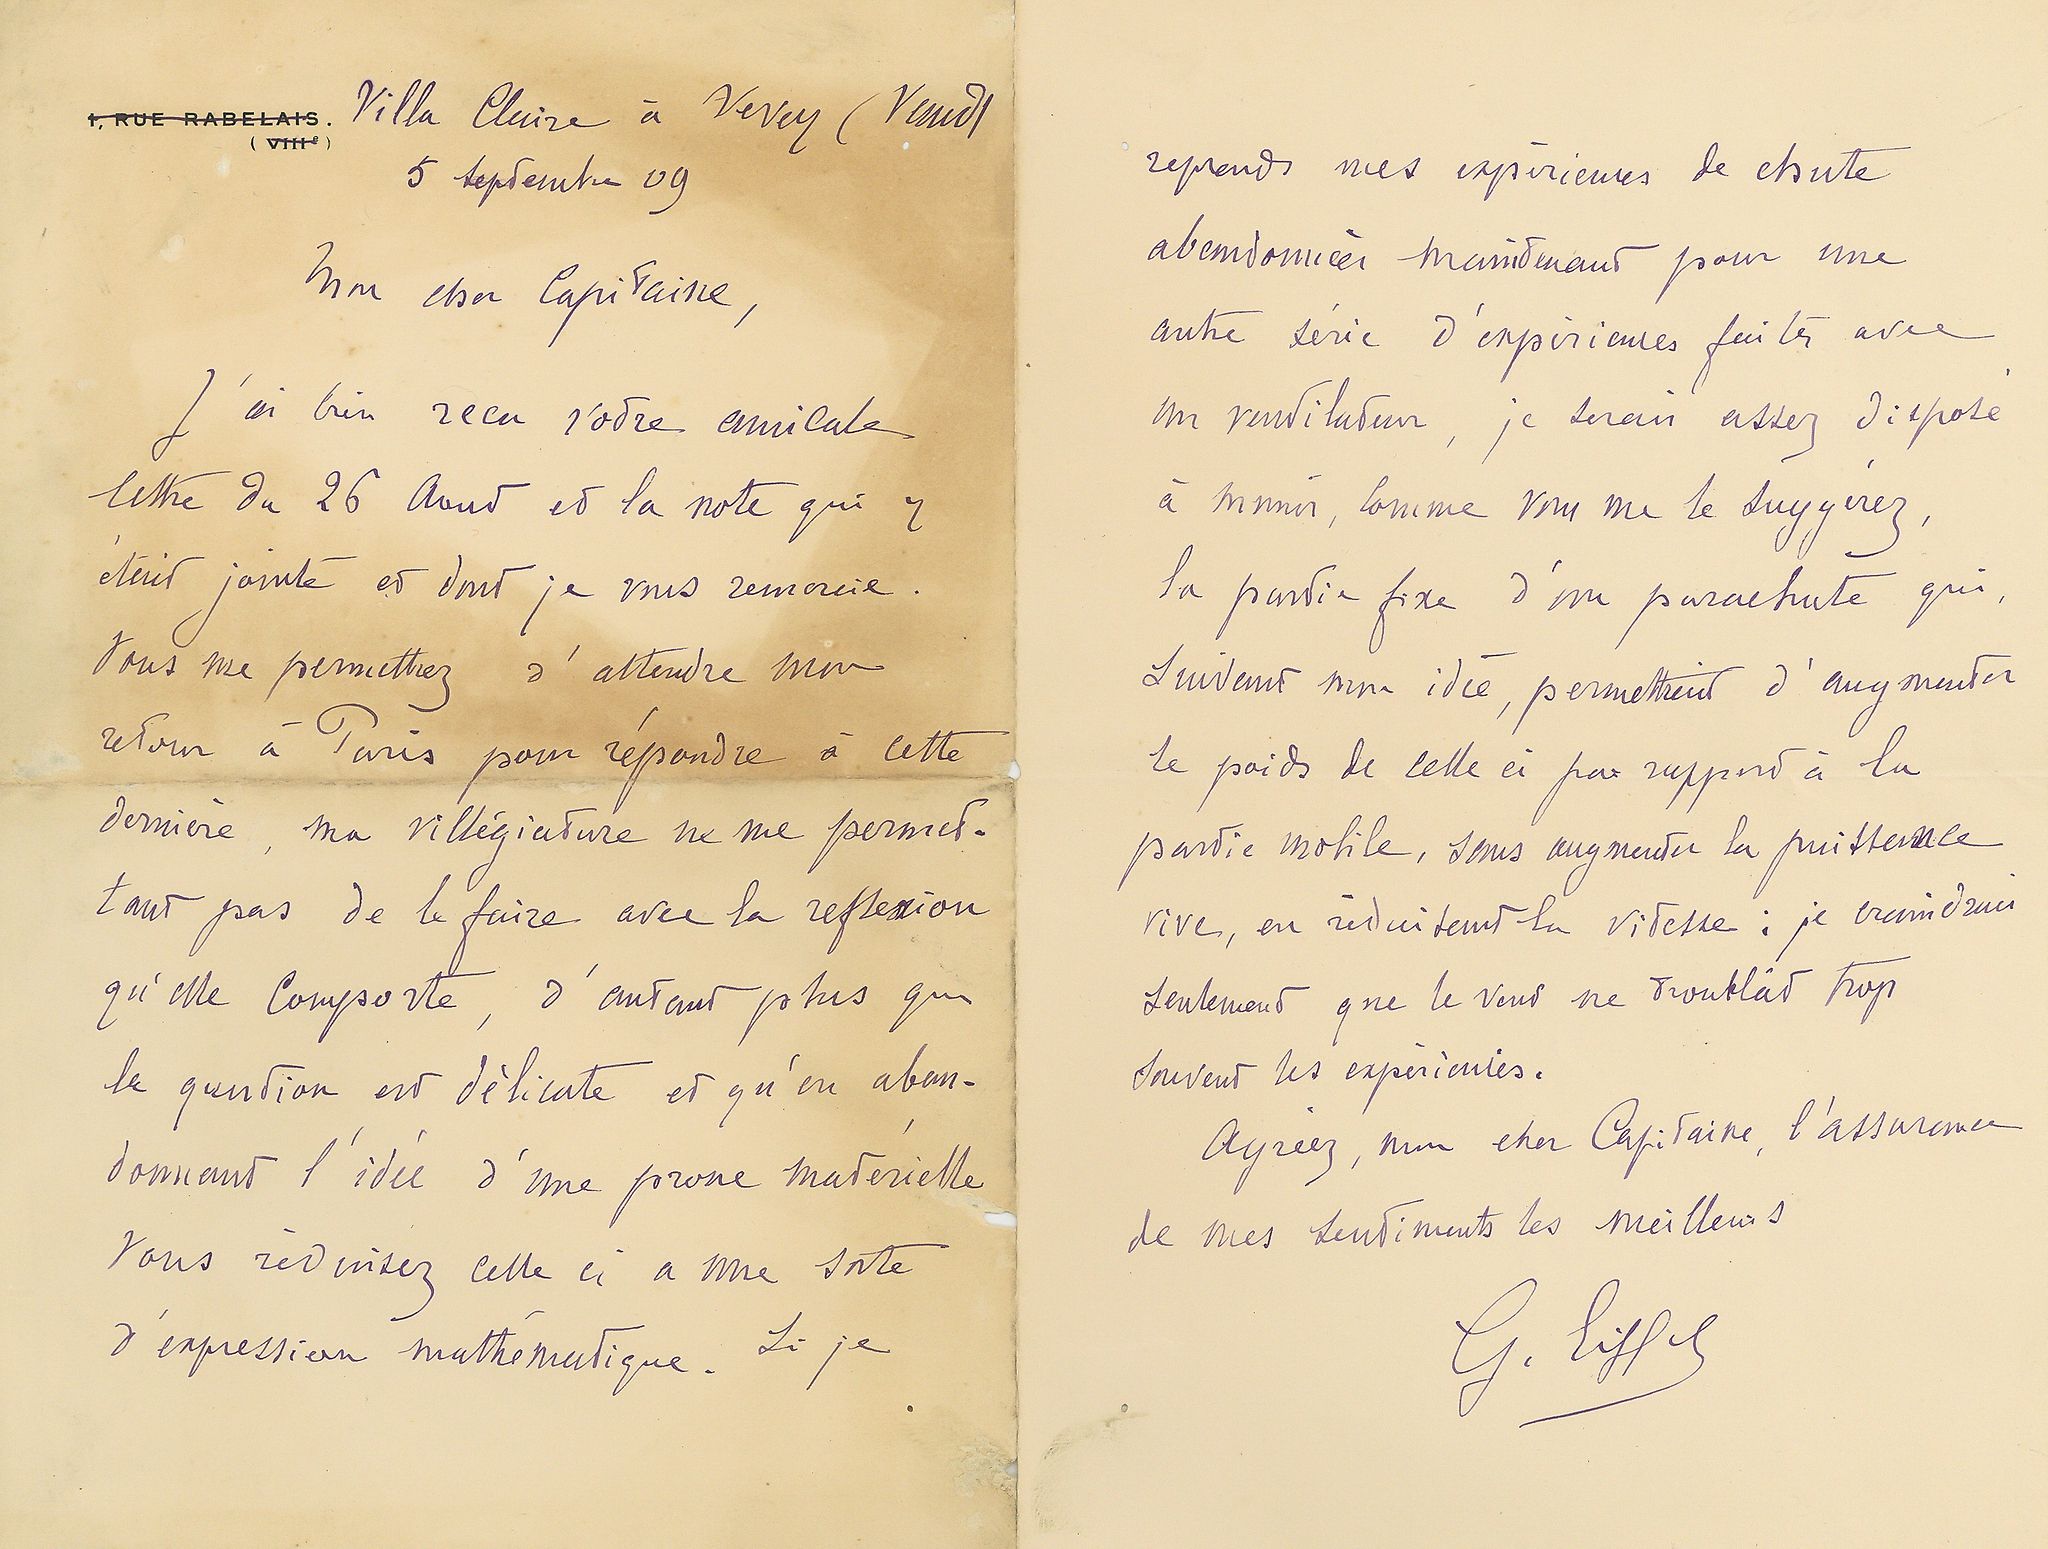 1, RUE RABELAIS.
(VIIIe)
Villa Claire à Vevey (Vaud)
5 septembre 09
Mon cher Capitaine,
J'ai bien reçu votre amicale
lettre du 26 Aout et la note qui y
était jointe et dont je vous remercie.
Vous me permettrez d'attendre mon
retour à Paris pour répondre à cette
dernière, ma villégiature ne me permet-
tant pas de le faire avec la reflexion
qu'elle comporte, d'autant plus que
la question est délicate et qu'en aban-
donnant l'idée d'une proue matérielle
vous réduisez celle ci a une sorte
d'expression mathématique. Si je
reprends mes expériences de chute
abandonnées maintenant pour une
autre série d'expériences faites avec
un ventilateur, je serais assez disposé
à munir, comme vous me le suggérez,
la partie fixe d'un parachute qui,
suivant mon idée, permettrait d'augmenter
le poids de celle ci par rapport à la
partie mobile, sans augmenter la puissance
vive, en réduisant la vitesse ; je craindrais
seulement que le vent ne troublât trop
souvent les expériences.
Agréez, mon cher Capitaine, l'assurance
de mes sentiments les meilleurs
G. Eiffel